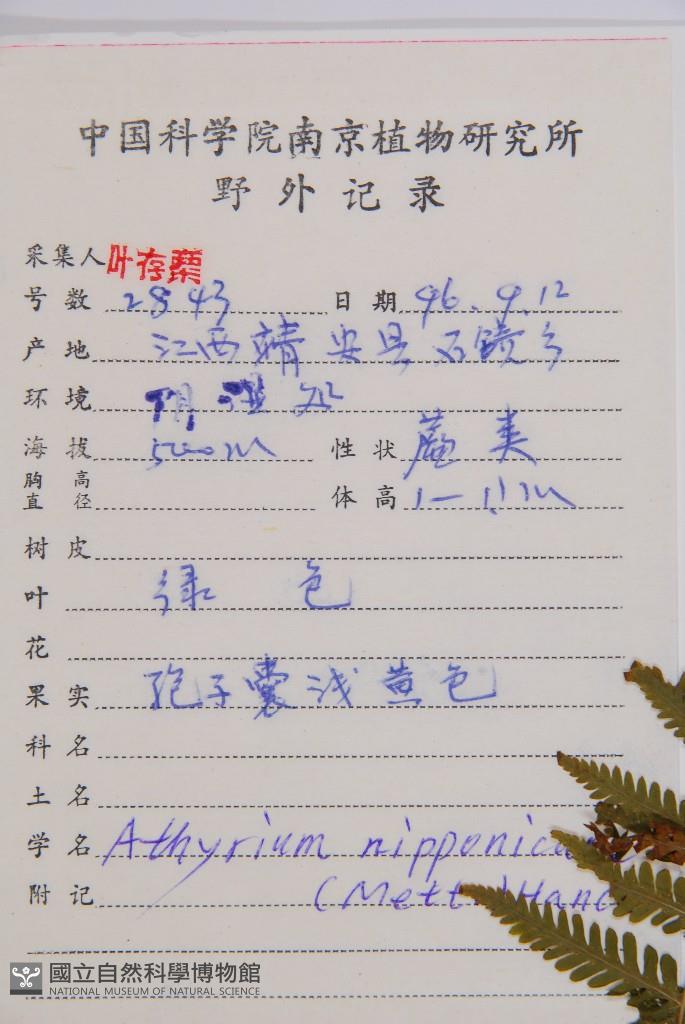 中国科学院南京植物研究所
野外记录
采集人 叶存粟
号数 2843 日期 96.9.12
产地 江西靖安县石镜乡
环境 阴湿处
海拔 500m 性状 蕨类
胸高直径 体高 1—1.1m
树皮
叶 绿色
花
果实 孢子囊浅黄色
科名
土名
学名 Athyrium
附记 (Mett.) Hanc
國立自然科學博物館
NATIONAL MUSEUM OF NATURAL SCIENCE